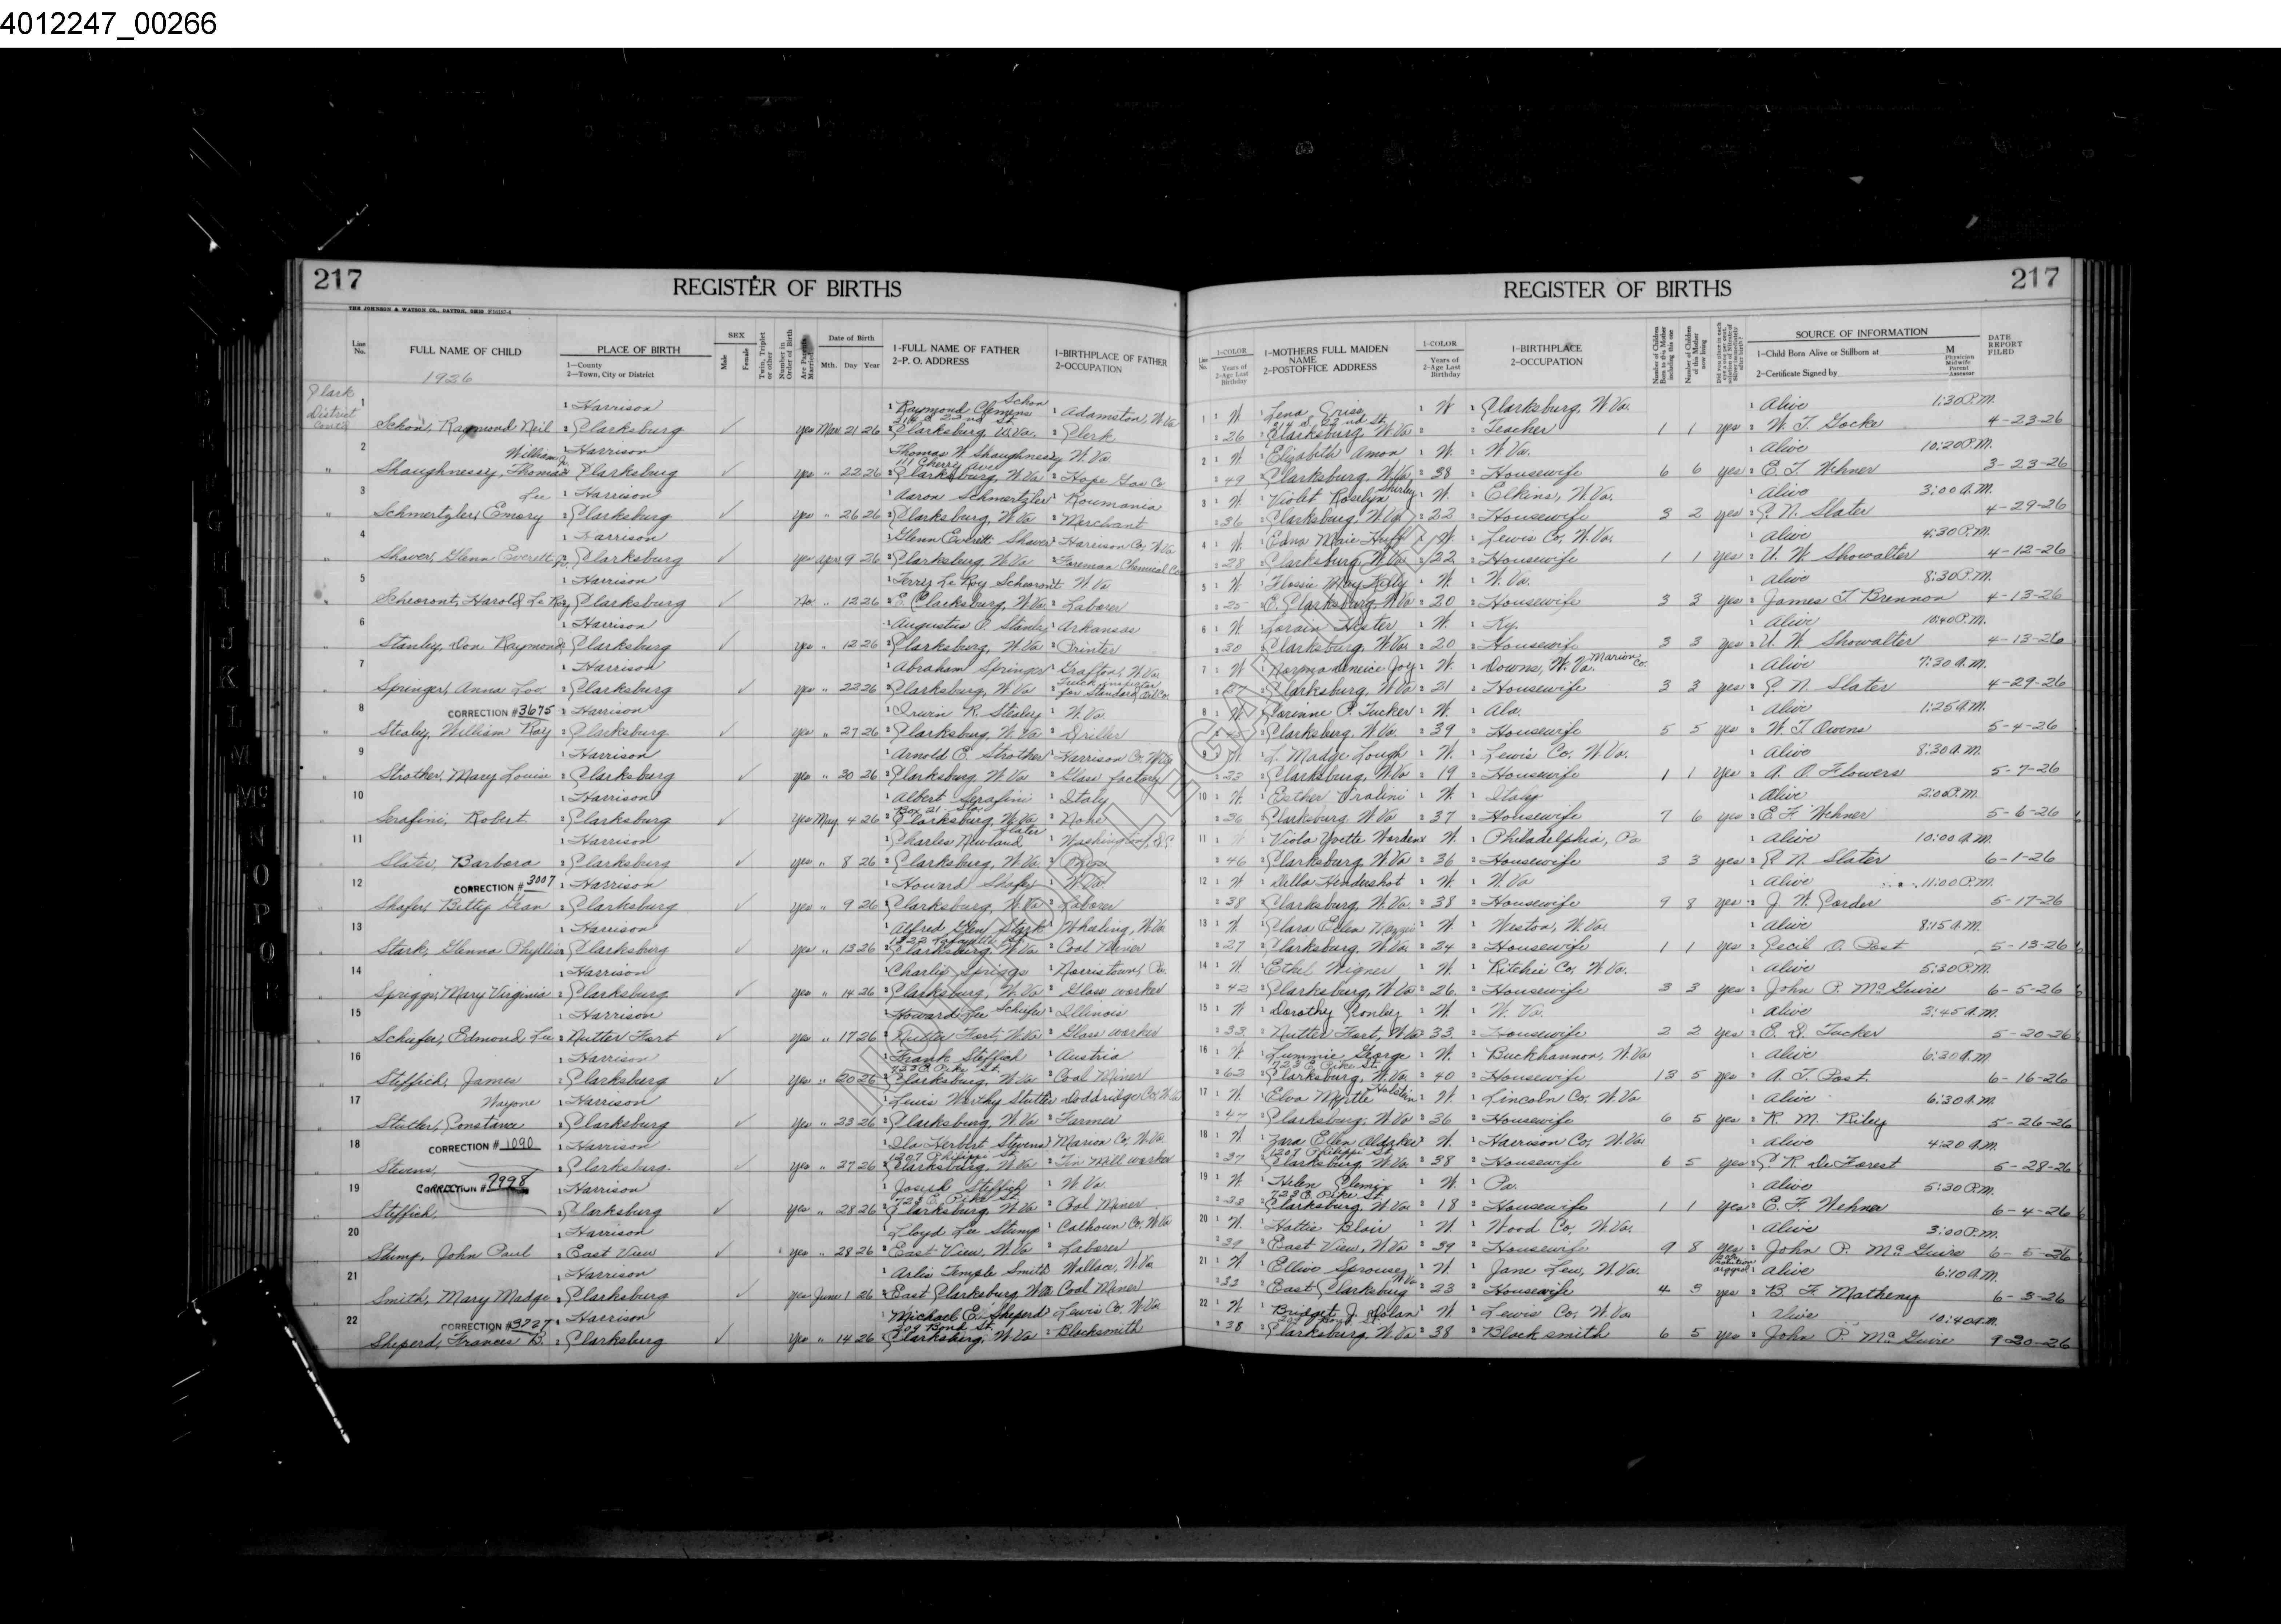 4012247_00266
217 REGISTER OF BIRTHS
REGISTER OF BIRTHS 217
THE JOHNSON & WATSON CO., DAYTON, OHIO
Line No. FULL NAME OF CHILD PLACE OF BIRTH 1—County 2—Town, City or District SEX Male Female Twin, Triplet or other Number in Order of Birth Are Parents Married Date of Birth Mth. Day Year 1-FULL NAME OF FATHER 2-P. O. ADDRESS 1-BIRTHPLACE OF FATHER 2-OCCUPATION
1-COLOR Years of 2-Age Last Birthday 1-MOTHERS FULL MAIDEN NAME 2-POSTOFFICE ADDRESS 1-COLOR Years of 2-Age Last Birthday 1-BIRTHPLACE 2-OCCUPATION Number of Children Born to this Mother including this one Number of Children of this Mother now living SOURCE OF INFORMATION 1-Child Born Alive or Stillborn at M 2-Certificate Signed by Physician Midwife Parent Assessor DATE REPORT FILED
1926
Clark District
1 1 Harrison 1 Raymond Clemens Schon 1 Adamston, W. Va.
Schon, Raymond Neil 2 Clarksburg yes Mar 21 26 2 Clarksburg, W. Va. 2 Clerk
1 1 W. 1 Lena Criss 1 W 1 Clarksburg, W. Va. 1 Alive 1:30 P.M.
2 26 314 S. 22nd St. 2 Clarksburg, W. Va. 2 Teacher 1 1 yes 2 W. T. Gocke 4-23-26
2 William Jr. 1 Harrison Thomas W. Shaughnessy W. Va.
Shaughnessy, Thomas Clarksburg yes " 22 26 111 Cherry Ave 2 Clarksburg, W. Va 2 Hope Gas Co
2 1 W. Elizabeth Amon 1 W. 1 W. Va. 1 Alive 10:20 P.M.
2 49 2 Clarksburg, W. Va. 2 38 2 Housewife 6 6 yes 2 E. F. Wehner 3-23-26
3 Lee 1 Harrison 1 Aaron Schmertzler 1 Roumania
" Schmertzler, Emory 2 Clarksburg yes " 26 26 2 Clarksburg, W. Va 2 Merchant
3 1 W. 1 Violet Roselyn Shirley 1 W. 1 Elkins, W. Va. 1 Alive 3:00 A.M.
2 36 2 Clarksburg, W. Va 2 22 2 Housewife 3 2 yes 2 C. N. Slater 4-29-26
4 1 Harrison 1 Glenn Everett Shaver 1 Harrison Co, W. Va
" Shaver, Glenn Everett Jr. 2 Clarksburg yes Apr. 9 26 2 Clarksburg, W. Va 2 Foreman Chemical Co
4 1 W. 1 Edna Marie Huff 1 W. 1 Lewis Co, W. Va. 1 Alive 4:30 P.M.
2 28 2 Clarksburg, W. Va 2 22 2 Housewife 1 1 yes 2 U. W. Showalter 4-12-26
5 1 Harrison 1 Terry Le Roy Schearont 1 W. Va
" Schearont, Harold Le Roy 2 Clarksburg No " 12 26 2 E. Clarksburg, W. Va. 2 Laborer
5 1 W. 1 Flossie May Kelly 1 W. 1 W. Va. 1 Alive 8:30 P.M.
2 25 2 E. Clarksburg, W. Va 2 20 2 Housewife 3 3 yes 2 James T Brennon 4-13-26
6 1 Harrison 1 Augustus O. Stanley 1 Arkansas
" Stanley, Don Raymond 2 Clarksburg yes " 12 26 2 Clarksburg, W. Va 2 Printer
6 1 W. 1 Lorain Hester 1 W. 1 Ky. 1 Alive 10:40 P.M.
2 30 2 Clarksburg, W. Va. 2 20 2 Housewife 3 3 yes 2 U. W. Showalter 4-13-26
7 1 Harrison 1 Abraham Springer 1 Grafton, W. Va.
" Springer, Anna Lou 2 Clarksburg yes " 22 26 2 Clarksburg, W. Va for Standard Oil Co.
7 1 W Joy 1 W. 1 Downs, W. Va. Marion Co. 1 Alive 7:30 A.M.
2 27 2 Clarksburg, W. Va 2 21 2 Housewife 3 3 yes 2 C. N. Slater 4-29-26
8 CORRECTION # 3675 1 Harrison 1 Irwin R. Stealey 1 W. Va.
" Stealey, William Ray 2 Clarksburg yes " 27 26 2 Clarksburg, W. Va 2 Driller
8 1 W. 1 Corinne P. Tucker 1 W. 1 Ala. 1 Alive 1:25 A.M.
2 Clarksburg, W. Va. 2 39 2 Housewife 5 5 yes 2 W. T. Owens 5-4-26
9 1 Harrison 1 Arnold E. Strother 1 Harrison Co. W. Va
" Strother, Mary Louise 2 Clarksburg yes " 30 26 2 Clarksburg, W. Va 2 Glass factory
9 W. 1 L. Madge Lough 1 W. 1 Lewis Co. W. Va. 1 Alive 8:30 A.M.
2 23 2 Clarksburg, W. Va 2 19 2 Housewife 1 1 yes 2 A. O. Flowers 5-7-26
10 1 Harrison 1 Albert Serafini 1 Italy
" Serafini, Robert 2 Clarksburg yes May 4 26 Box 21 2 Clarksburg, W. Va 2 None
10 1 W. 1 Esther 1 W. 1 Italy 1 Alive 2:00 P.M.
2 36 2 Clarksburg, W. Va 2 37 2 Housewife 7 6 yes 2 E. F. Wehner 5-6-26
11 1 Harrison 1 Charles Newland Slater 1 Washington, D.C.
" Slater, Barbara 2 Clarksburg yes " 8 26 2 Clarksburg, W. Va.
11 1 W 1 Viola Yvette Worden 1 W. 1 Philadelphia, Pa 1 Alive 10:00 A.M.
2 46 2 Clarksburg, W. Va 2 36 2 Housewife 3 3 yes 2 C. N. Slater 6-1-26
12 CORRECTION # 3007 1 Harrison 1 Howard Shafer 1 W. Va
" Shafer, Betty Jean 2 Clarksburg yes " 9 26 2 Clarksburg, W. Va 2 Laborer
12 1 W. 1 Della Hendershot 1 W. 1 W. Va 1 Alive 11:00 P.M.
2 38 2 Clarksburg, W. Va. 2 38 2 Housewife 9 8 yes 2 J. W. Corder 5-17-26
13 1 Harrison 1 Alfred Glen Stark 1 Wheeling, W. Va
" Stark, Glenna Phyllis 2 Clarksburg yes " 13 26 2 Clarksburg, W. Va 2 Coal Miner
13 1 W. 1 Clara Ellen 1 W. 1 Weston, W. Va. 1 Alive 8:15 A.M.
2 27 2 Clarksburg, W. Va. 2 24 2 Housewife 1 1 yes 2 Cecil O. Post 5-13-26
14 1 Harrison 1 Charlie Spriggs 1 Norristown, Pa.
" Spriggs, Mary Virginia 2 Clarksburg yes " 14 26 2 Clarksburg, W. Va 2 Glass worker
14 1 W. 1 Ethel Wigner 1 W. 1 Ritchie Co, W. Va. 1 Alive 5:30 P.M.
2 42 2 Clarksburg, W. Va 2 26 2 Housewife 3 3 yes 2 John P. McGuire 6-5-26
15 1 Harrison 1 Howard Lee Schiefer 1 Illinois
" Schiefer, Edmond Lee 2 Nutter Fort yes " 17 26 2 Nutter Fort, W. Va 2 Glass worker
15 1 W. 1 Dorothy Conley 1 W. 1 W. Va. 1 Alive 3:45 A.M.
2 33 2 Nutter Fort, W. Va 2 33 2 Housewife 2 2 yes 2 Tucker 5-20-26
16 1 Harrison 1 Frank Steffich 1 Austria
" Steffich, James 2 Clarksburg yes " 20 26 723 E. Pike St. 2 Clarksburg, W. Va 2 Coal Miner
16 1 W. 1 Lummie George 1 W. 1 Buckhannon, W. Va 1 Alive 6:30 A.M
2 63 723 E. Pike St. 2 Clarksburg, W. Va. 2 40 2 Housewife 13 5 yes 2 A. T. Post. 6-16-26
17 Wayne 1 Harrison 1 Lewis Worthy Stutler Doddridge Co, W. Va
" Stutler, Constance 2 Clarksburg yes " 23 26 2 Clarksburg, W. Va 2 Farmer
17 1 W. 1 Elva Myrtle Holstein 1 W. 1 Lincoln Co, W. Va 1 Alive 6:30 A.M.
2 47 2 Clarksburg, W. Va 2 36 2 Housewife 6 5 yes 2 R. M. Riley 5-26-26
18 CORRECTION # 1090 1 Harrison 1 Ila Herbert Stevens 1 Marion Co, W. Va.
" Stevens, 2 Clarksburg yes " 27 26 1207 Philippi St. 2 Clarksburg, W. Va 2 Tin Mill worker
18 1 W 1 Zara Ellen 1 W. 1 Harrison Co, W. Va. 1 Alive 4:20 A.M.
2 37 1207 Philippi St. 2 Clarksburg, W. Va 2 38 2 Housewife 6 5 yes 2 C. R. DeForest 5-28-26
19 CORRECTION # 7998 1 Harrison 1 Joseph Steffich 1 W. Va.
" Steffich, 2 Clarksburg yes " 28 26 723 E. Pike St. 2 Clarksburg, W. Va 2 Coal Miner
19 1 W. 1 Helen Clemix 1 W. 1 Pa. 1 Alive 5:30 P.M.
723 E. Pike St. 2 Clarksburg, W. Va 2 18 2 Housewife 1 1 yes 2 E. F. Wehner 6-4-26
20 1 Harrison 1 Lloyd Lee Stump 1 Calhoun Co, W. Va
" Stump, John Paul 2 East View yes " 28 26 2 East View, W. Va 2 Laborer
20 1 W. 1 Hattie Blair 1 W 1 Wood Co, W. Va. 1 Alive 3:00 P.M.
2 39 2 East View, W. Va 2 39 2 Housewife 9 8 yes 2 John P. McGuire 6-5-26
21 1 Harrison 1 Arlie Temple Smith Wallace, W. Va
" Smith, Mary Madge 2 Clarksburg yes June 1 26 2 East Clarksburg W. Va 2 Coal Miner
21 1 W 1 Ellen Sprouse 1 W. 1 Jane Lew, W. Va. argyrol 1 Alive 6:10 A.M.
2 East Clarksburg W. Va 2 23 2 Housewife 4 3 yes 2 B. F. Matheny 6-3-26
22 CORRECTION # 3727 1 Harrison 1 Michael E. Sheperd 1 Lewis Co, W. Va
Sheperd, Frances B. 2 Clarksburg yes " 14 26 209 Bond St. 2 Clarksburg, W. Va 2 Blacksmith
22 1 W. 1 Bridget J. Nolan 1 W 1 Lewis Co, W. Va 1 Alive 10:40 A.M.
2 38 2 Clarksburg, W. Va 2 38 2 Blacksmith 6 5 yes 2 John P. McGuire 9-20-26